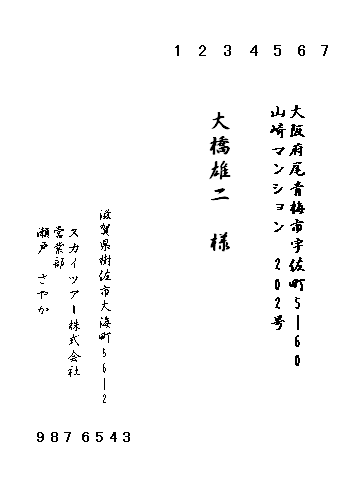 1 2 3 4 5 6 7
大阪府尾青梅市宇佐町5-60
山崎マンション 202号
大橋雄二 様
滋賀県樹佐市大海町56-2
スカイツアー株式会社
営業部
瀬戸 さやか
987 6543